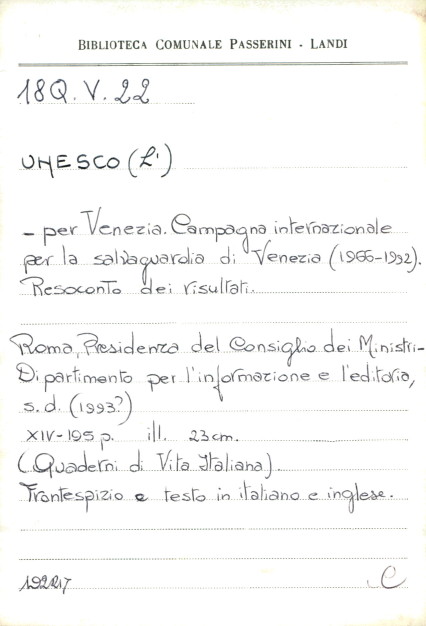 BIBLIOTECA COMUNALE PASSERINI - LANDI
18Q.V.22
UNESCO (L')
- per Venezia. Campagna internazionale
per la salvaguardia di Venezia (1966-1992).
Resoconto dei risultati.
Roma, Presidenza del Consiglio dei Ministri-
Dipartimento per l'informazione e l'editoria,
s.d. (1993?)
XIV-195 p. ill. 23 cm.
(Quaderni di Vita Italiana).
Frontespizio e testo in italiano e inglese.
C